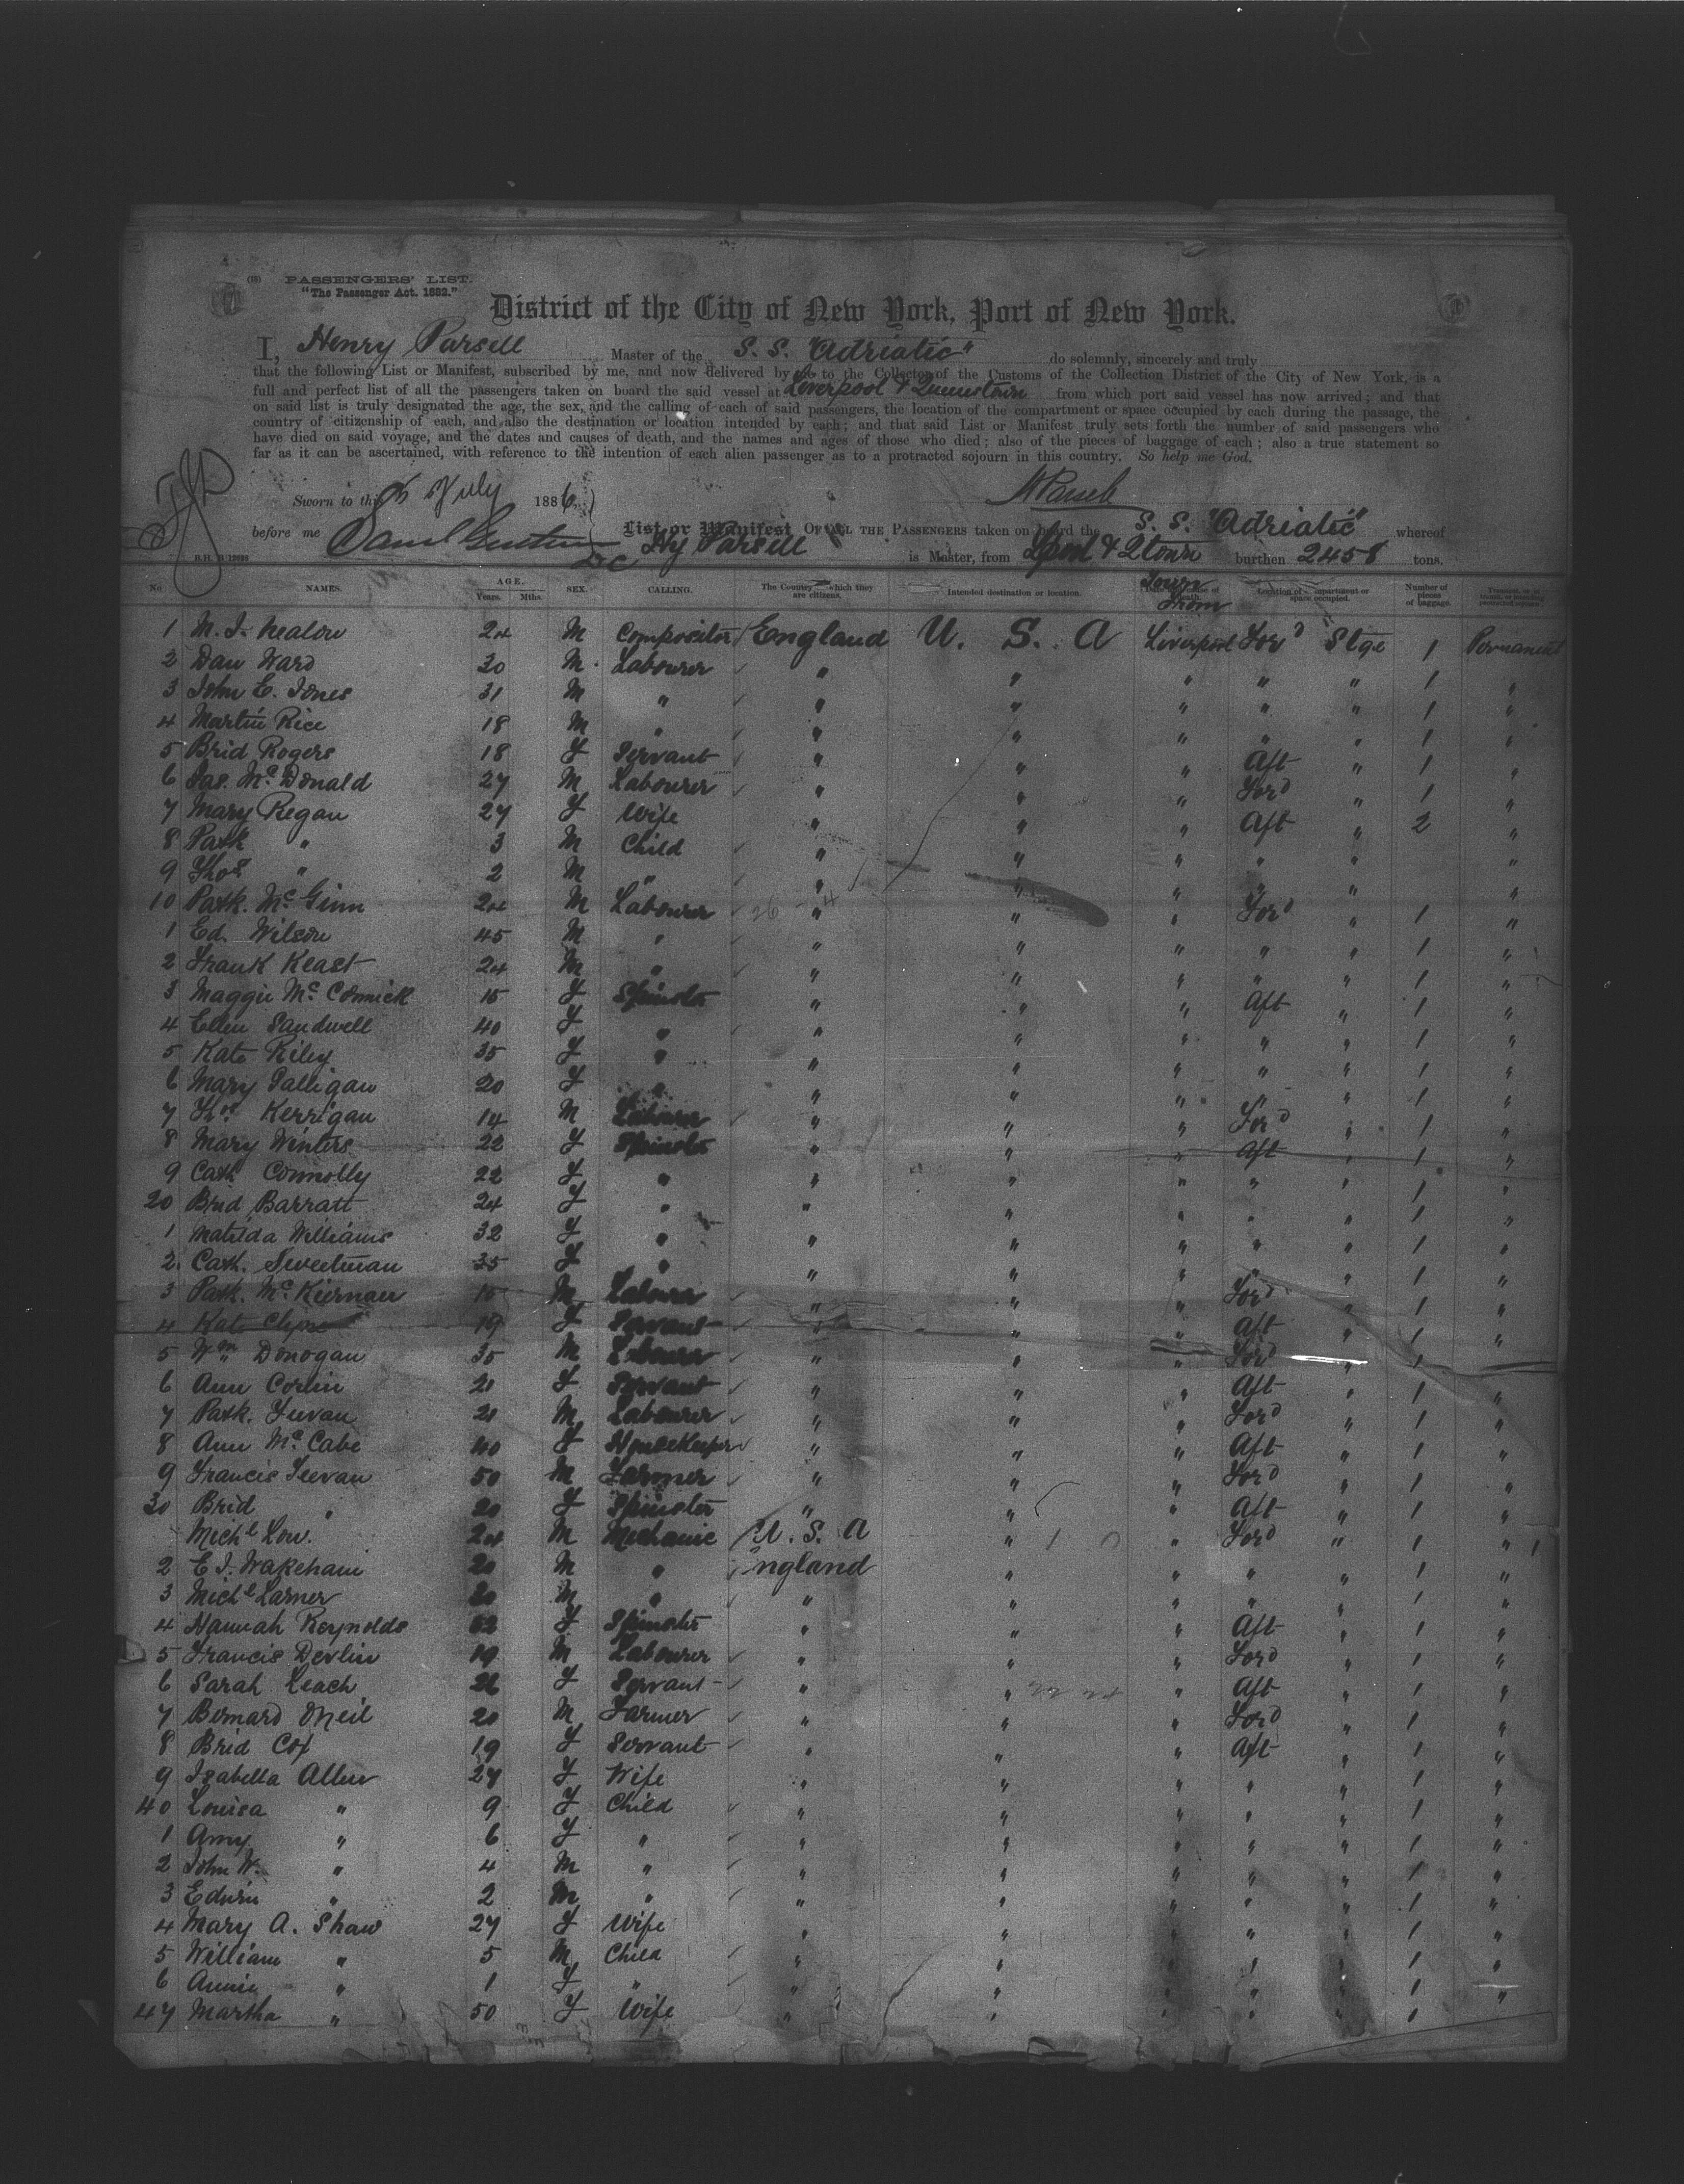 PASSENGERS' LIST.
"The Passenger Act. 1882."
District of the City of New York, Port of New York.
I, Henry Parsell Master of the S. S. "Adriatic" do solemnly, sincerely and truly
that the following List or Manifest, subscribed by me, and now delivered by me to the Collector of the Customs of the Collection District of the City of New York, is a
full and perfect list of all the passengers taken on board the said vessel at Liverpool & Queenstown from which port said vessel has now arrived; and that
on said list is truly designated the age, the sex, and the calling of each of said passengers, the location of the compartment or space occupied by each during the passage, the
country of citizenship of each, and also the destination or location intended by each; and that said List or Manifest truly sets forth the number of said passengers who
have died on said voyage, and the dates and causes of death, and the names and ages of those who died; also of the pieces of baggage of each; also a true statement so
far as it can be ascertained, with reference to the intention of each alien passenger as to a protracted sojourn in this country. So help me God.
Sworn to this July 1886
HParsell
before me
List or Manifest OF ALL THE PASSENGERS taken on board the S. S. "Adriatic" whereof
Hy Parsell is Master, from Lpool & Qtown burthen 2458 tons.
No. NAMES. AGE. Years. Mths. SEX. CALLING. The Country which they are citizens. Intended destination or location. Town From Location of compartment or space occupied. Number of pieces of baggage.
1 M. J. Nealow 24 M Compositor England U. S. A Liverpool For'd Stge 1 Permanent
2 Dan Ward 20 M Labourer " " " " " 1 "
3 John E. Jones 31 M " " " " " " 1 "
4 Martin Rice 18 M " " " " " " 1 "
5 Brid Rogers 18 F Servant " " " Aft " 1 "
6 Jas. McDonald 27 M Labourer " " " For'd " 1 "
7 Mary Regan 27 F Wife " " " Aft " 2 "
8 Patk " 3 M Child " " " " " "
9 Thos " 2 M " " " " " " "
10 Patk. McGinn 24 M Labourer " " " For'd " 1 "
1 Ed. Wilson 45 M " " " " " " 1 "
2 Frank Keast 24 M " " " " " " 1 "
3 Maggie McCormick 15 F Spinster " " " Aft " 1 "
4 Ellen Sandwell 40 F " " " " " " 1 "
5 Kate Riley 35 F " " " " " " 1 "
6 Mary Galligan 20 F " " " " " " 1 "
7 Thos Kerrigan 14 M Labourer " " " For'd " 1 "
8 Mary Winters 22 F Spinster " " " Aft " 1 "
9 Cath Connolly 22 F " " " " " " 1 "
20 Brid Barratt 24 F " " " " " " 1 "
1 Matilda Williams 32 F " " " " " " 1 "
2 Cath. Sweetman 35 F " " " " " " 1 "
3 Patk. McKiernan M Labourer " " " For'd " 1 "
4 Kate Clyne 19 F Servant " " " Aft " 1 "
5 Wm Donogan 30 M Labourer " " " For'd " 1 "
6 Ann Corlin 21 F Servant " " " Aft " 1 "
7 Patk. Teevan 21 M Labourer " " " For'd " 1 "
8 Ann McCabe 40 F HouseKeeper " " " Aft " 1 "
9 Francis Teevan 50 M Farmer " " " For'd " 1 "
30 Brid " 20 F Spinster " " " Aft " 1 "
Michl Low. 24 M Mechanic U. S. A " " For'd " 1 "
2 E J. Wakeham 20 M " England " " " " 1 "
3 Michl Larner 20 M " " " " " " 1 "
4 Hannah Reynolds F Spinster " " " Aft " 1 "
5 Francis Devlin 19 M Labourer " " " For'd " 1 "
6 Sarah Leach F Servant " " " Aft " 1 "
7 Bernard ONeil 20 M Farmer " " " For'd " 1 "
8 Brid Cox 19 F Servant " " " Aft " 1 "
9 Isabella Allen 27 F Wife " " " " " 1 "
40 Louisa " 9 F Child " " " " " 1 "
1 Amy " 6 F " " " " " " 1 "
2 John W. " 4 M " " " " " " 1 "
3 Edwin " 2 M " " " " " " 1 "
4 Mary A. Shaw 27 F Wife " " " " " 1 "
5 William " 5 M Child " " " " " 1 "
6 Annie " 1 F " " " " " " 1 "
47 Martha " 50 F Wife " " " " " 1 "